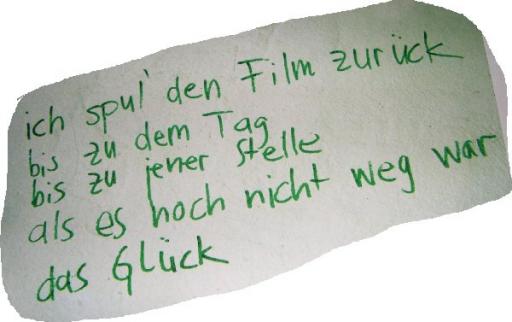 ich spul' den Film zurück
bis zu dem Tag
bis zu jener Stelle
als es noch nicht weg war
das Glück